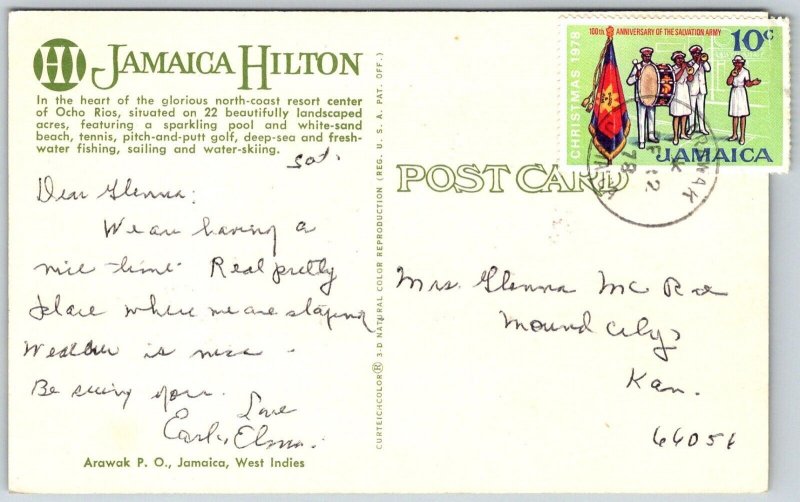 HI JAMAICA HILTON
In the heart of the glorious north-coast resort center
of Ocho Rios, situated on 22 beautifully landscaped
acres, featuring a sparkling pool and white-sand
beach, tennis, pitch-and-putt golf, deep-sea and fresh-
water fishing, sailing and water-skiing.
Sat.
Dear Glenna:
We are having a
nice time. Real pretty
place where we are staying
Weather is nice.
Be seeing you.
Love
Earl, Elma.
Arawak P. O., Jamaica, West Indies
CURTEICHCOLOR® 3-D NATURAL COLOR REPRODUCTION (REG. U. S. A. PAT. OFF.)
POST CARD
100th ANNIVERSARY OF THE SALVATION ARMY
10c
CHRISTMAS 1978
JAMAICA
ARAWAK
12
78
JAMAICA
Mrs. Glenna McRae
Mound City,
Kan.
66056